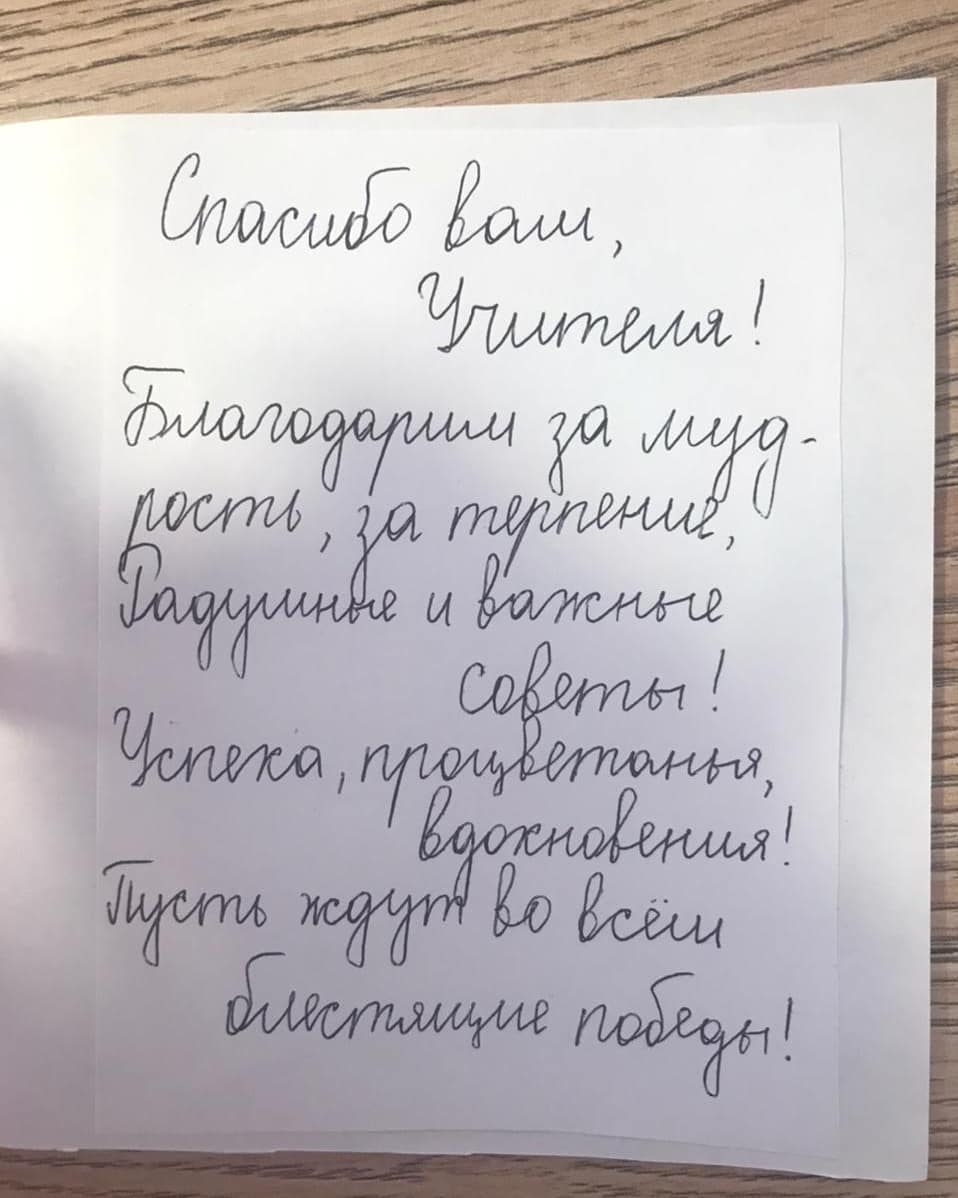 Спасибо вам,
Учителя!
Благодарим за муд-
рость, за терпение,
Радушные и важные
советы!
Успеха, процветанья,
вдохновения!
Пусть ждут во всём
блестящие победы!